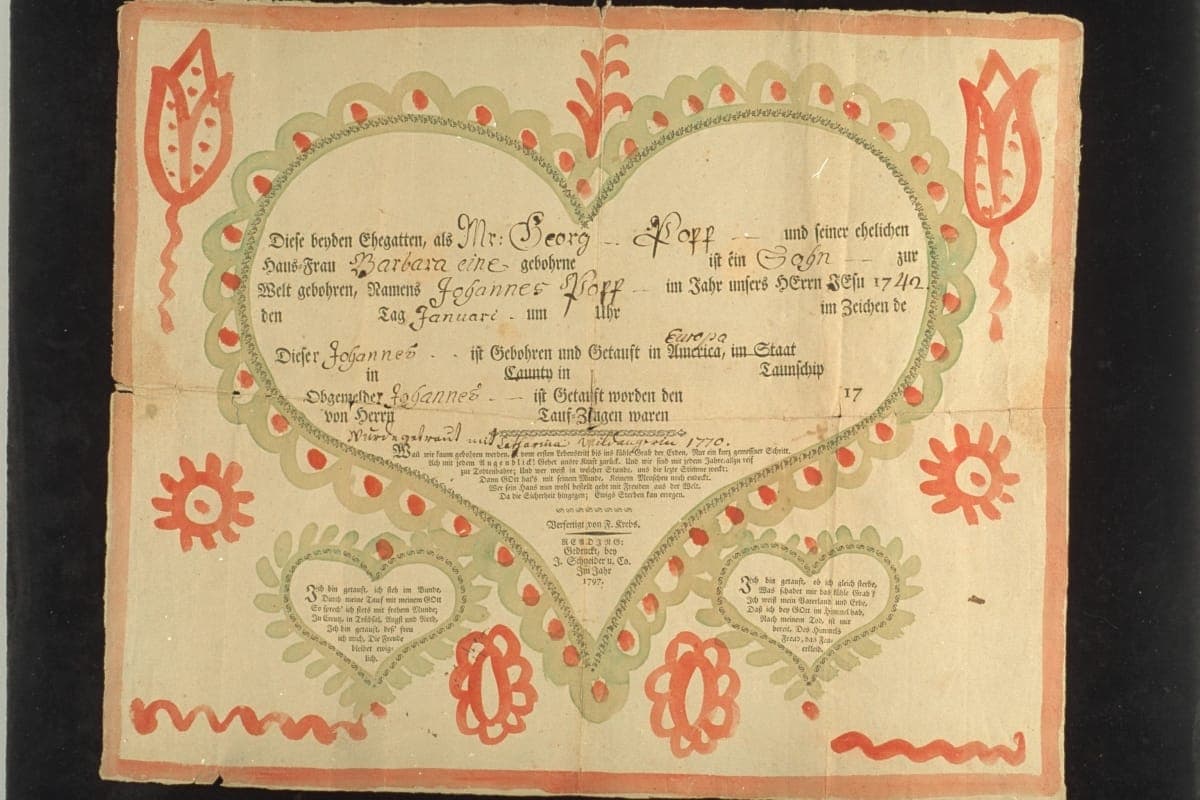 Diese beyden Ehegatten, als Mr: Georg Popp und seiner ehelichen
Haus-Frau Barbara eine gebohrne ist ein Sohn zur
Welt gebohren, Namens Johannes Popp im Jahr unsers HErrn JEsu 1742.
den Tag Januari um Uhr im Zeichen de
Europa
Dieser Johannes ist Gebohren und Getauft in America, im Staat
in Caunty in Taunschip
Obgemelder Johannes ist Getauft worden den 17
von Herrn Tauf-Zeugen waren
Wurde getraut mit Catharina 1770.
Wan wir kaum gebohren werden, vom ersten Lebenstritt bis ins kühle Grab der Erden, Nur ein kurz gemessner Schritt.
Ach mit jedem Augenblick! Gehet unsre Kraft zurück. Und wir sind mit jedem Jahre, allzu reif
zur Todtenbahre; Und wer weiß in welcher Stunde, uns die lezte Stimme weckt;
Dann GOtt hat's mit seinem Munde, Keinem Menschen noch endeckt.
Wer sein Haus nun wohl bestellt geht mit Freuden aus der Welt.
Da die Sicherheit hingegen; Ewigs Sterben kan erregen.
Verfertigt von F. Krebs.
READING:
Gedruckt, bey
J. Schneider u. Co.
Im Jahr
1797.
Ich bin getauft, ich steh im Bunde,
Durch meine Tauf mit meinem GOtt
So sprech' ich stets mit frohem Munde;
In Creutz, in Trübsal, Angst und Noth,
Ich bin getauft, deß' freu
ich mich, Die Freude
bleibet ewig-
lich.
Ich bin getauft, ob ich gleich sterbe,
Was schadet mir das kühle Grab?
Ich weiß mein Vaterland und Erbe,
Daß ich bey GOtt im Himmel hab,
Nach meinem Tod, ist mir
bereit, Des Himmels
Freud, das Fey-
erkleid.